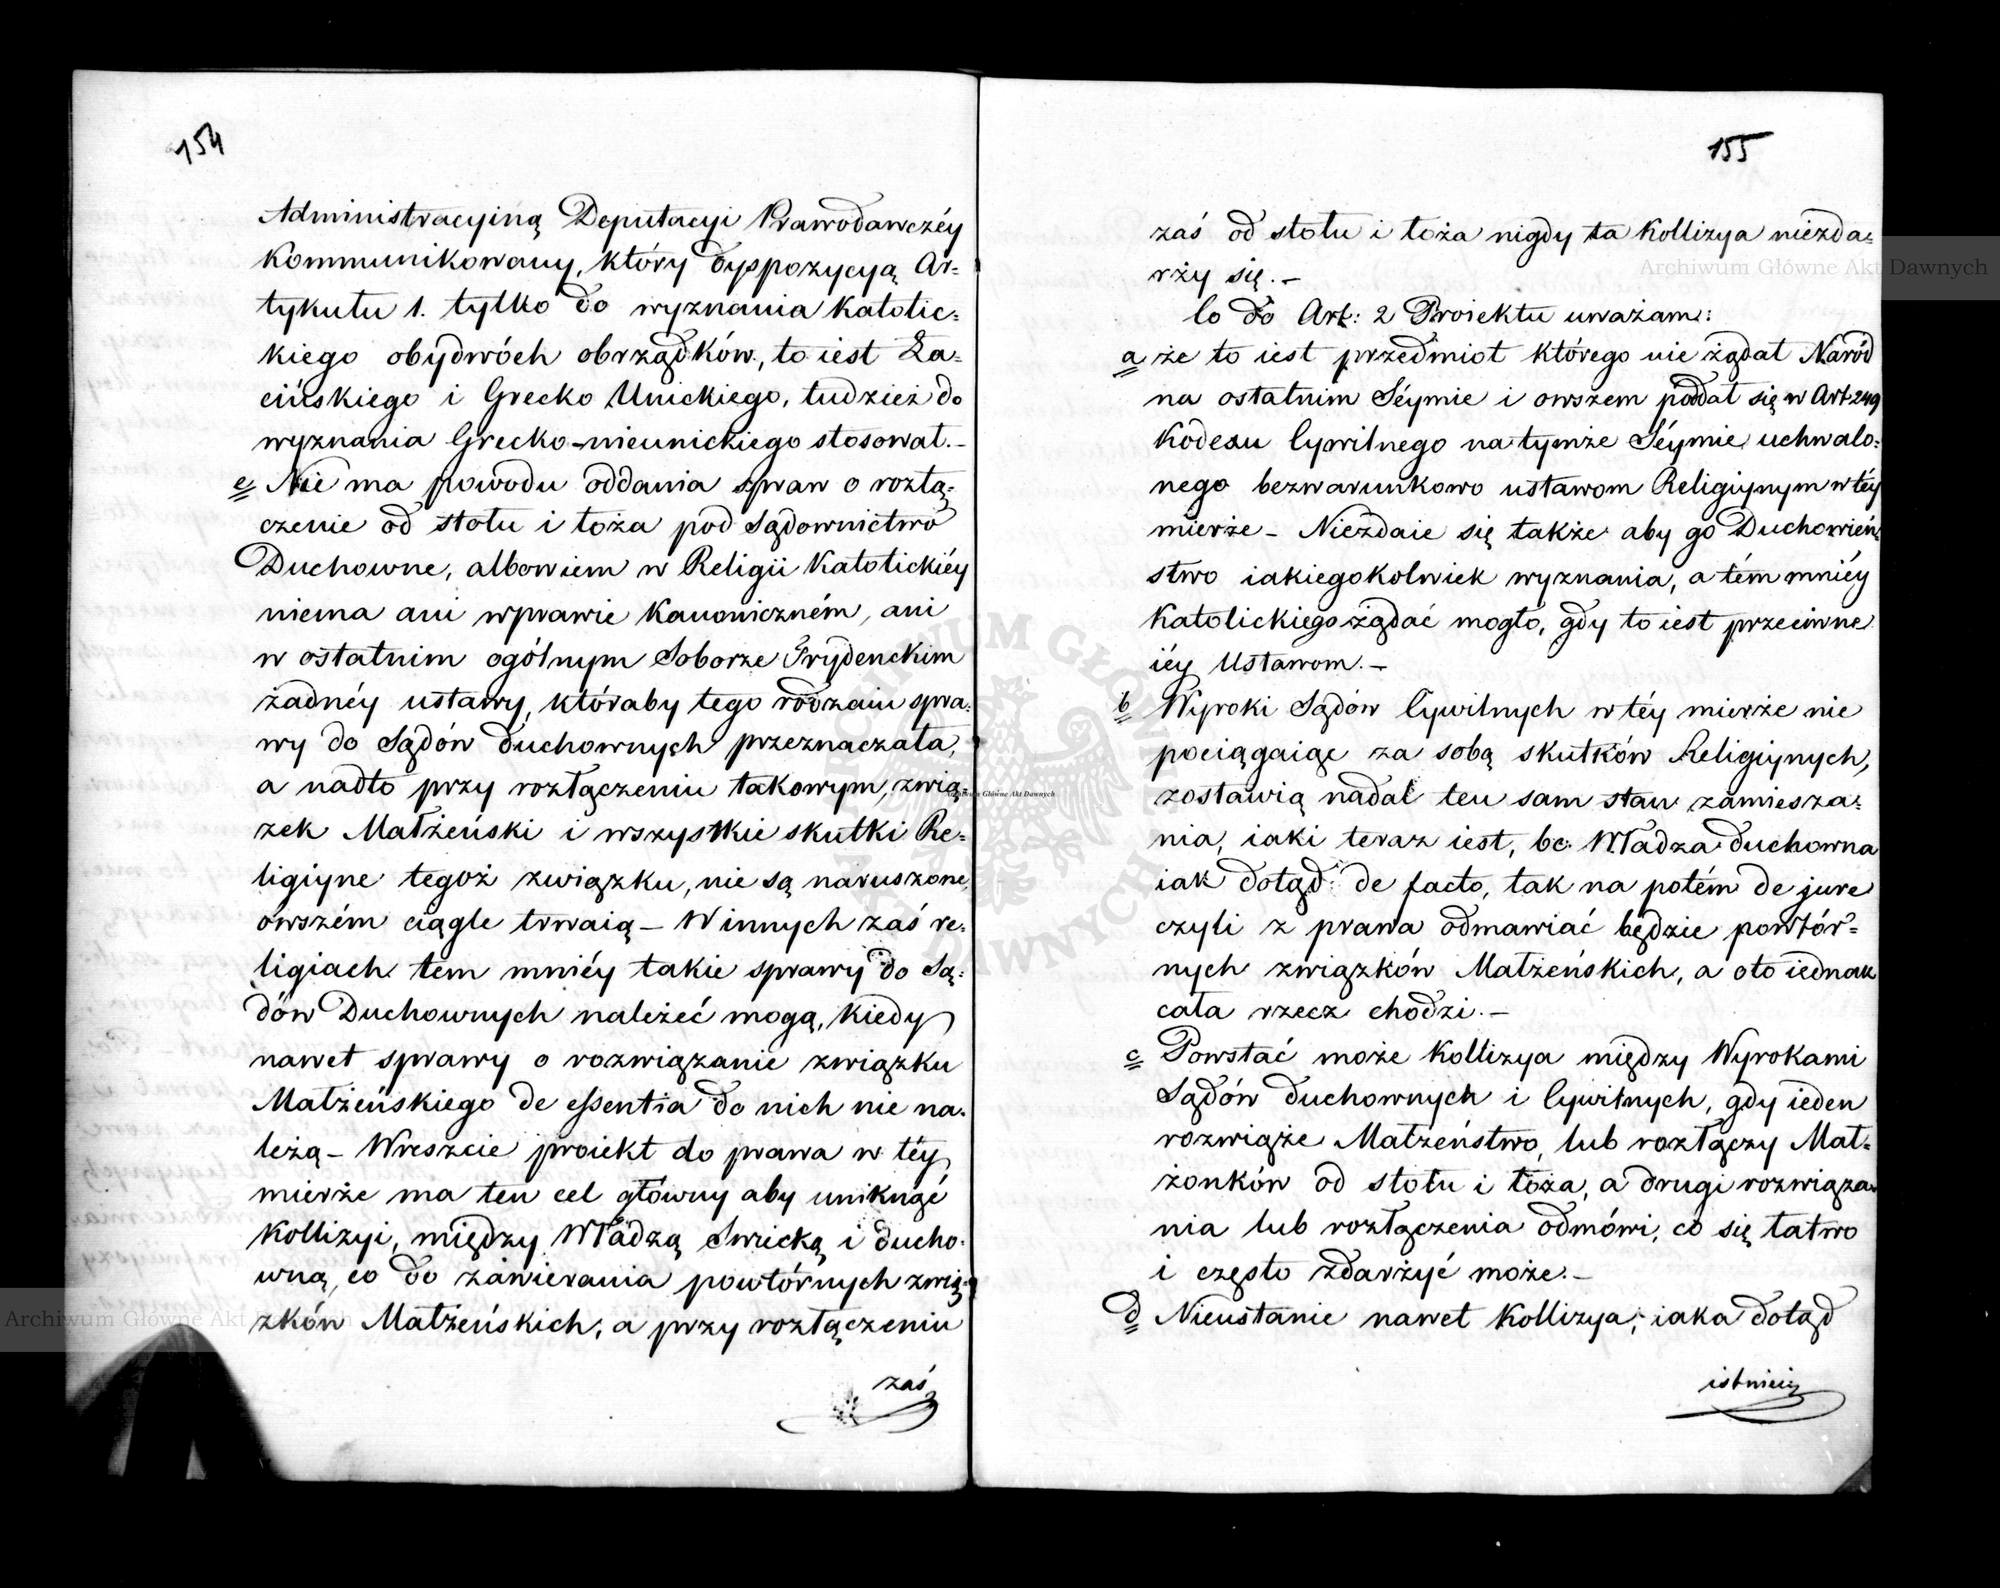 154
Administracyiną Deputacyi Prawodawczéy
kommunikowany, który dyspozycyą Ar-
tykułu 1. tylko do wyznania Katolic-
kiego obydwóch obrządków, to iest Ła-
cińskiego i Grecko Unickiego, tudzież do
wyznania Grecko-nieunickiego stosował.-
e/ Nie ma powodu oddania spraw o rozłą-
czenie od stołu i łoża pod Sądownictwo
Duchowne, albowiem w Religii Katolickiéy
niema ani w prawie Kanoniczném, ani
w ostatnim ogólnym Soborze Trydenckim
żadnéy ustawy, któraby tego rodzaiu spra-
wy do Sądów duchownych przeznaczała,
a nadto przy rozłączeniu takowym, zwią-
zek Małżeński i wszystkie skutki Re-
ligiyne tegoż związku, nie są naruszone,
owszém ciągle trwaią – W innych zaś re-
ligiach tem mniéy takie sprawy do Są-
dów Duchownych należéć mogą, kiedy
nawet sprawy o rozwiązanie związku
Małżeńskiego de essentia do nich nie na-
leżą – Wreszcie proiekt do prawa w téy
mierże ma ten cel główny aby uniknąć
kollizyi, między Władzą Swiecką i ducho-
wną, co do zawierania powtórnych zwią-
zków Małżeńskich, a przy rozłączeniu
zaś
155
zaś od stołu i łoża nigdy ta kollizya niezda-
rży się.-
Co do Art: 2 Proiektu uważam:
a że to iest przedmiot którego nie żądał Naród
na ostatnim Séymie i owszem poddał się w Art 249
Kodexu Cywilnego na tymże Séymie uchwalo-
nego bezwarunkowo ustawom Religiynym w téy
mierże – Niezdaie się także aby go Duchowień-
stwo iakiegokolwiek wyznania, a tém mniéy
Katolickiego żądać mogło, gdy to iest przeciwne
iéy Ustawom.-
b Wyroki Sądów Cywilnych w téy mierże nie
pociągaiąc za sobą skutków Religiynych,
zostawią nadal ten sam stan zamiesza-
nia, iaki teraz iest, bo Władza duchowna
iak dotąd de facto, tak na potém de jure
czyli z prawa odmawiać będzie powtór-
nych związków Małżeńskich, a oto iednak
cała rzecz chodzi.-
c Powstać może kollizya między Wyrokami
Sądów duchownych i Cywilnych, gdy ieden
rozwiąże Małżeństwo, lub rozłączy Mał-
żonków od stołu i łoża, a drugi rozwiąza-
nia lub rozłączenia odmówi, co się łatwo
i często zdarżyć może.-
d Nieustanie nawet kollizya, iaka dotąd
istnieie
Archiwum Główne Akt Dawnych
Archiwum Główne Akt Dawnych
Archiwum Główne Akt Dawnych
ARCHIWUM GŁÓWNE AKT DAWNYCH